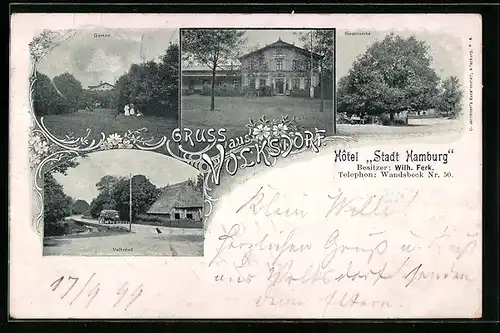 Garten
Friedenseiche
GRUSS aus
VOLKSDORF
Hôtel „Stadt Hamburg"
Besitzer: Wilh. Ferk.
Telephon: Wandsbeck Nr. 50.
Klein Willi!
Herzlichen Gruß u. Kuß
aus Volksdorf senden
deine Eltern.
17/9 99